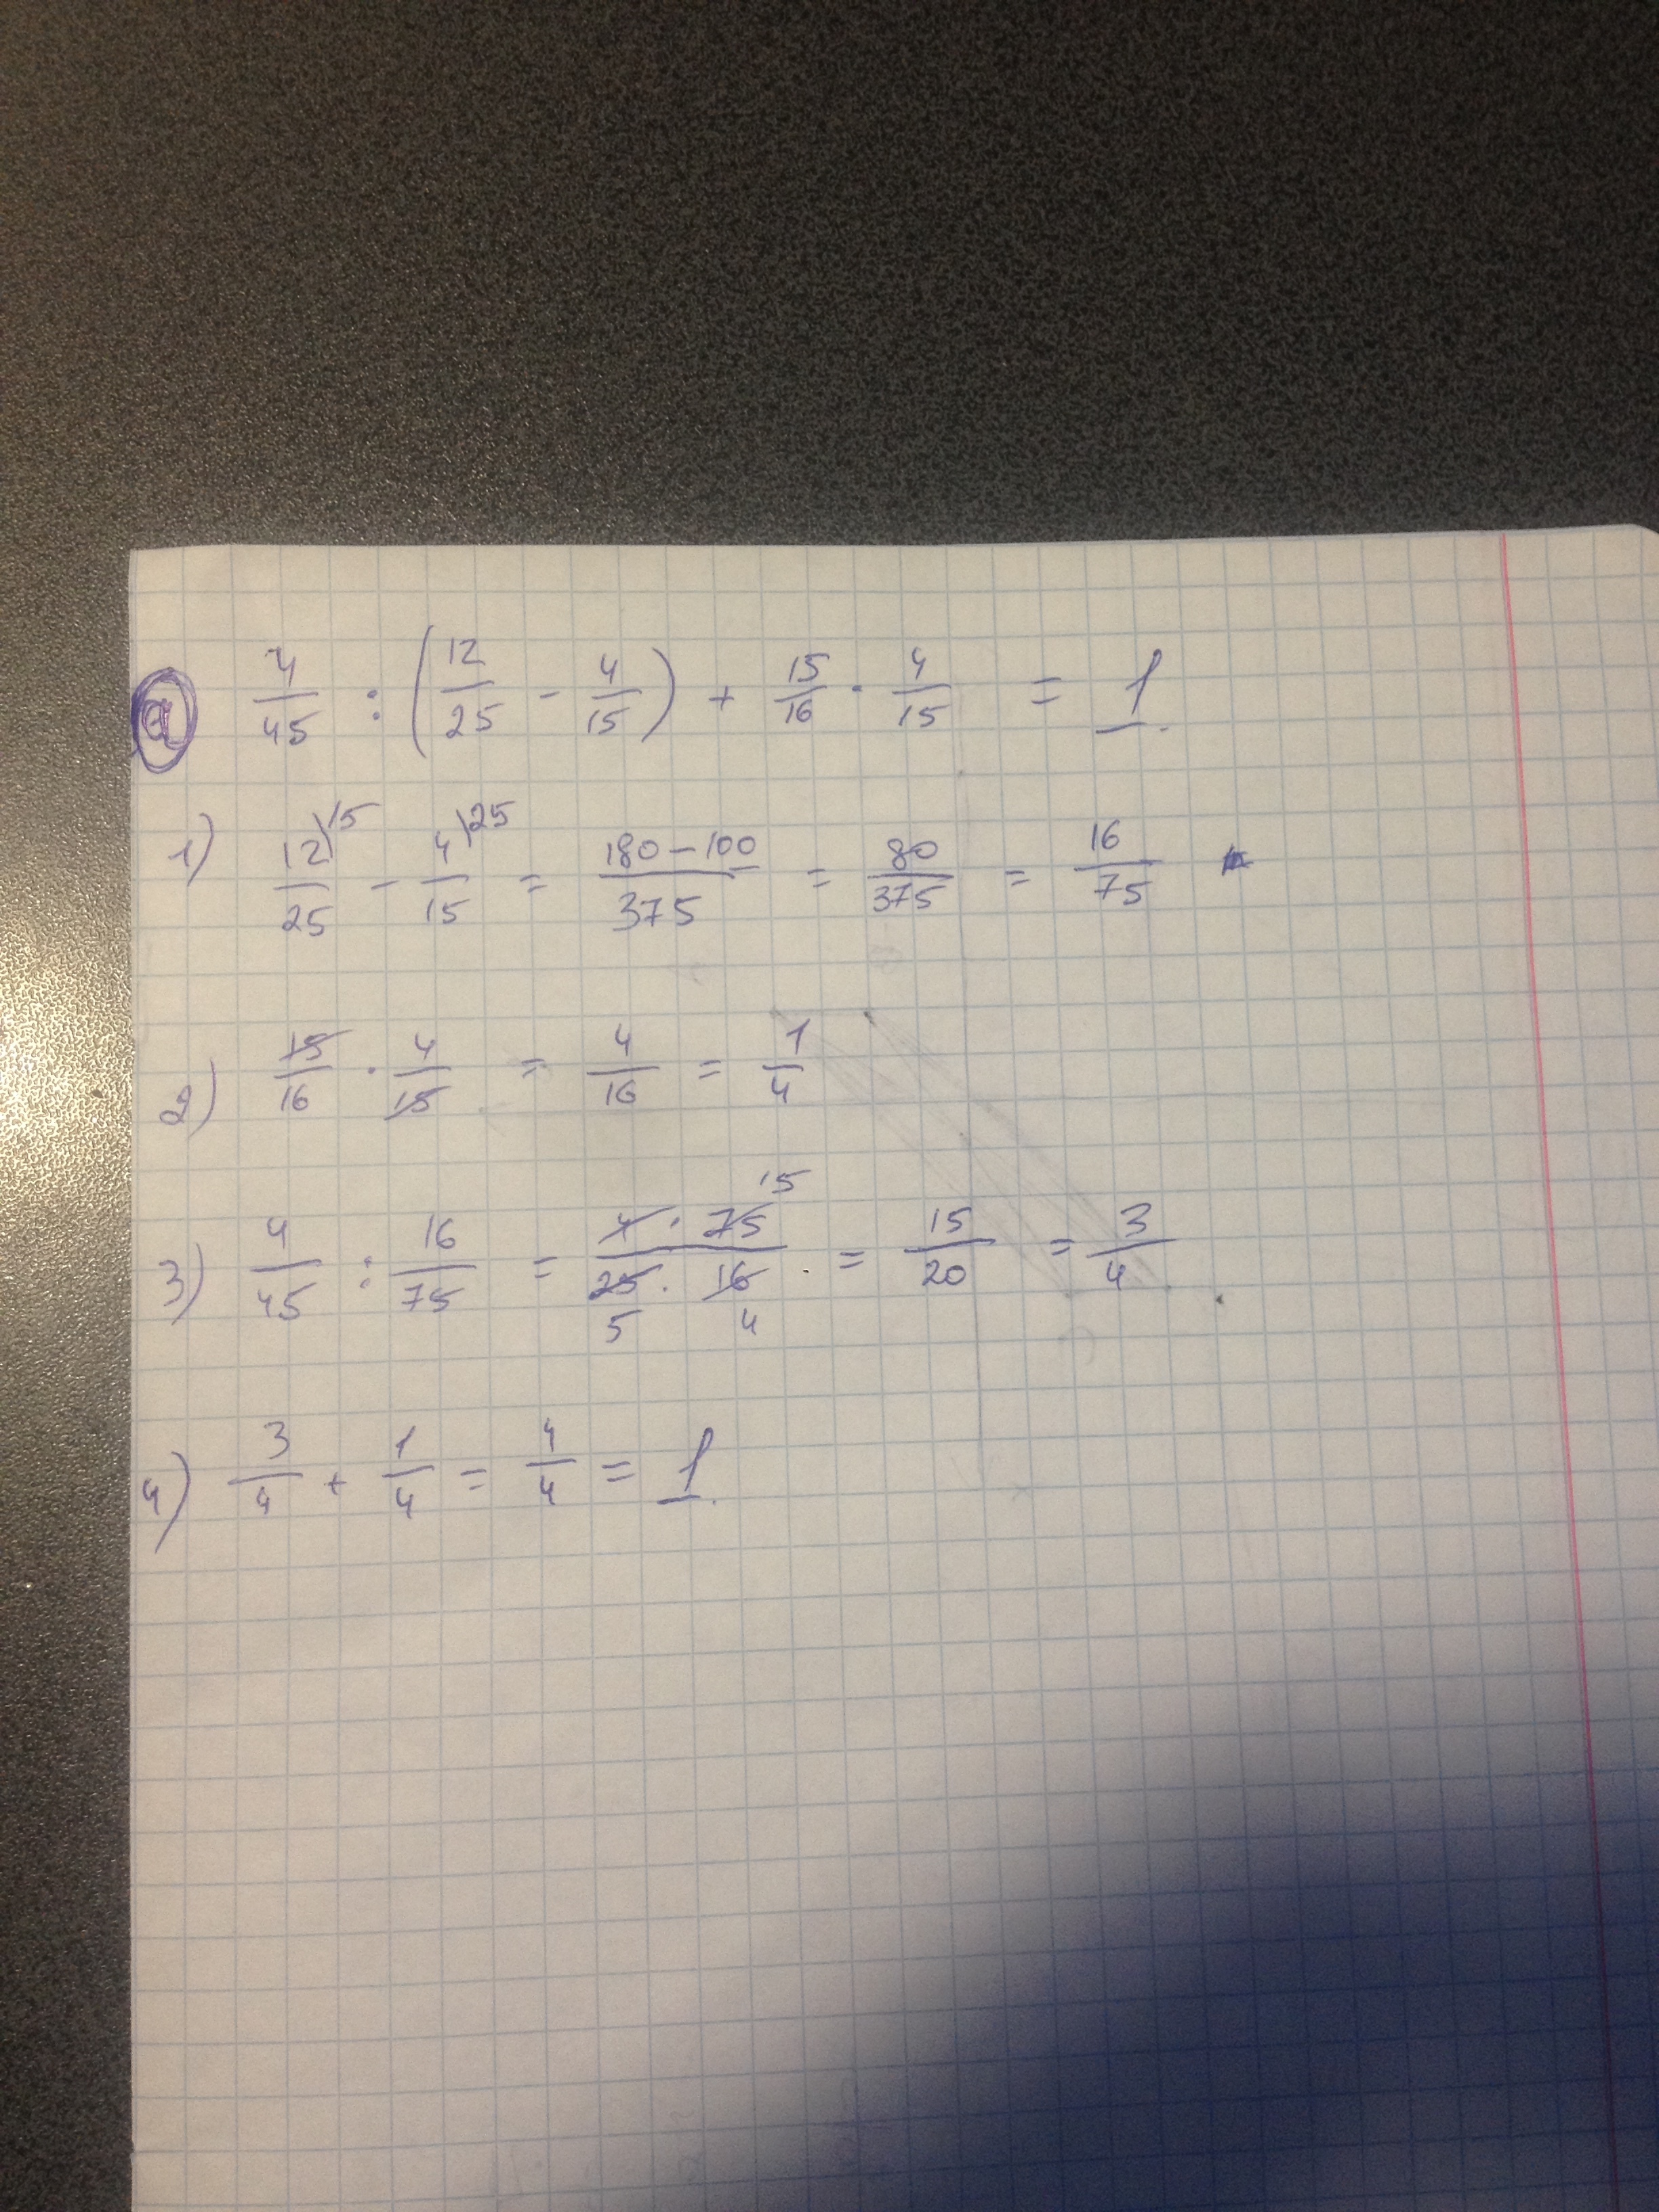 а) 4/45 : (12/25 - 4/15) + 15/16 · 4/15 = 1.
1) 12\15/25 - 4\25/15 = 180-100/375 = 80/375 = 16/75
2) 15/16 · 4/15 = 4/16 = 1/4
3) 4/45 : 16/75 = 4 · 75 15/25 · 16 5 4 = 15/20 = 3/4
4) 3/4 + 1/4 = 4/4 = 1.